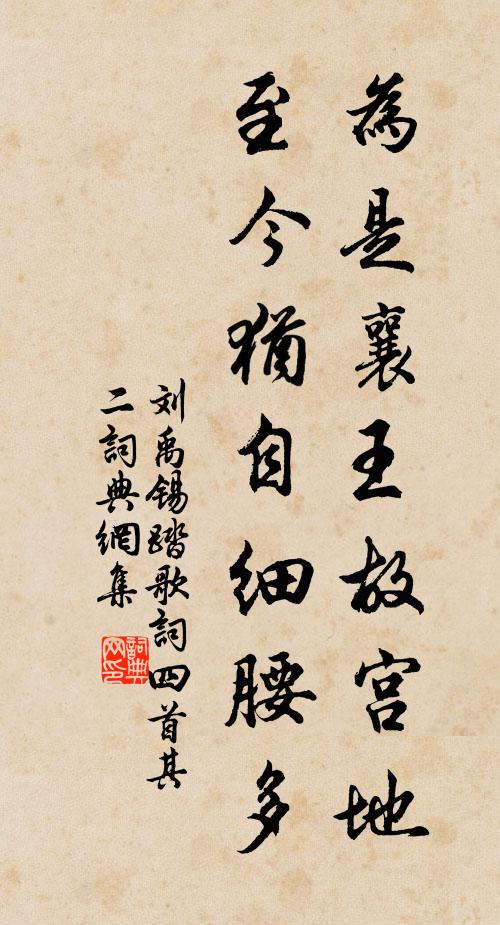 為是襄王故宫地
至今猶自細腰多
刘禹锡踏歌詞四首其
二詞典網集
詞典
网印